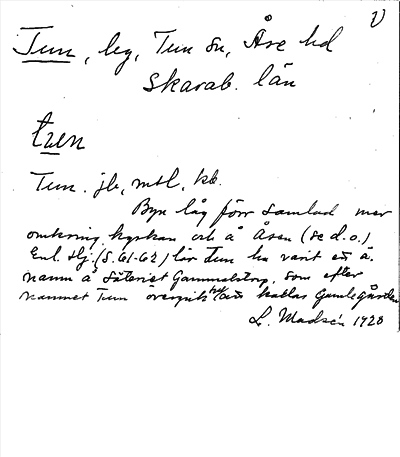 V
Tun, by, Tun sn, Åse hd
Skarab. län
tuen
Tun. jb, mtl, kb.
Byn låg förr samlad mer
omkring kyrkan och å Åsen (se d.o.)
Enl. Hj. (S. 61-62) lär Tun ha varit ett ä.
namn å Säteriet Gammelstorp, som efter
namnet Tun övergick att kallas Gamlegården
L. Madsén 1928